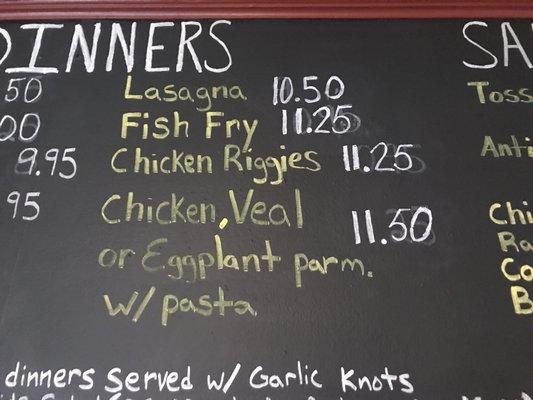 DINNERS
50
Lasagna 10.50
20
Fish Fry 11.25
9.95
Chicken Riggies 11.25
95
Chicken, Veal
or Eggplant parm. 11.50
w/ pasta
dinners Served w/ Garlic Knots
SA
Toss
Anti
Chi
Ra
Co
B